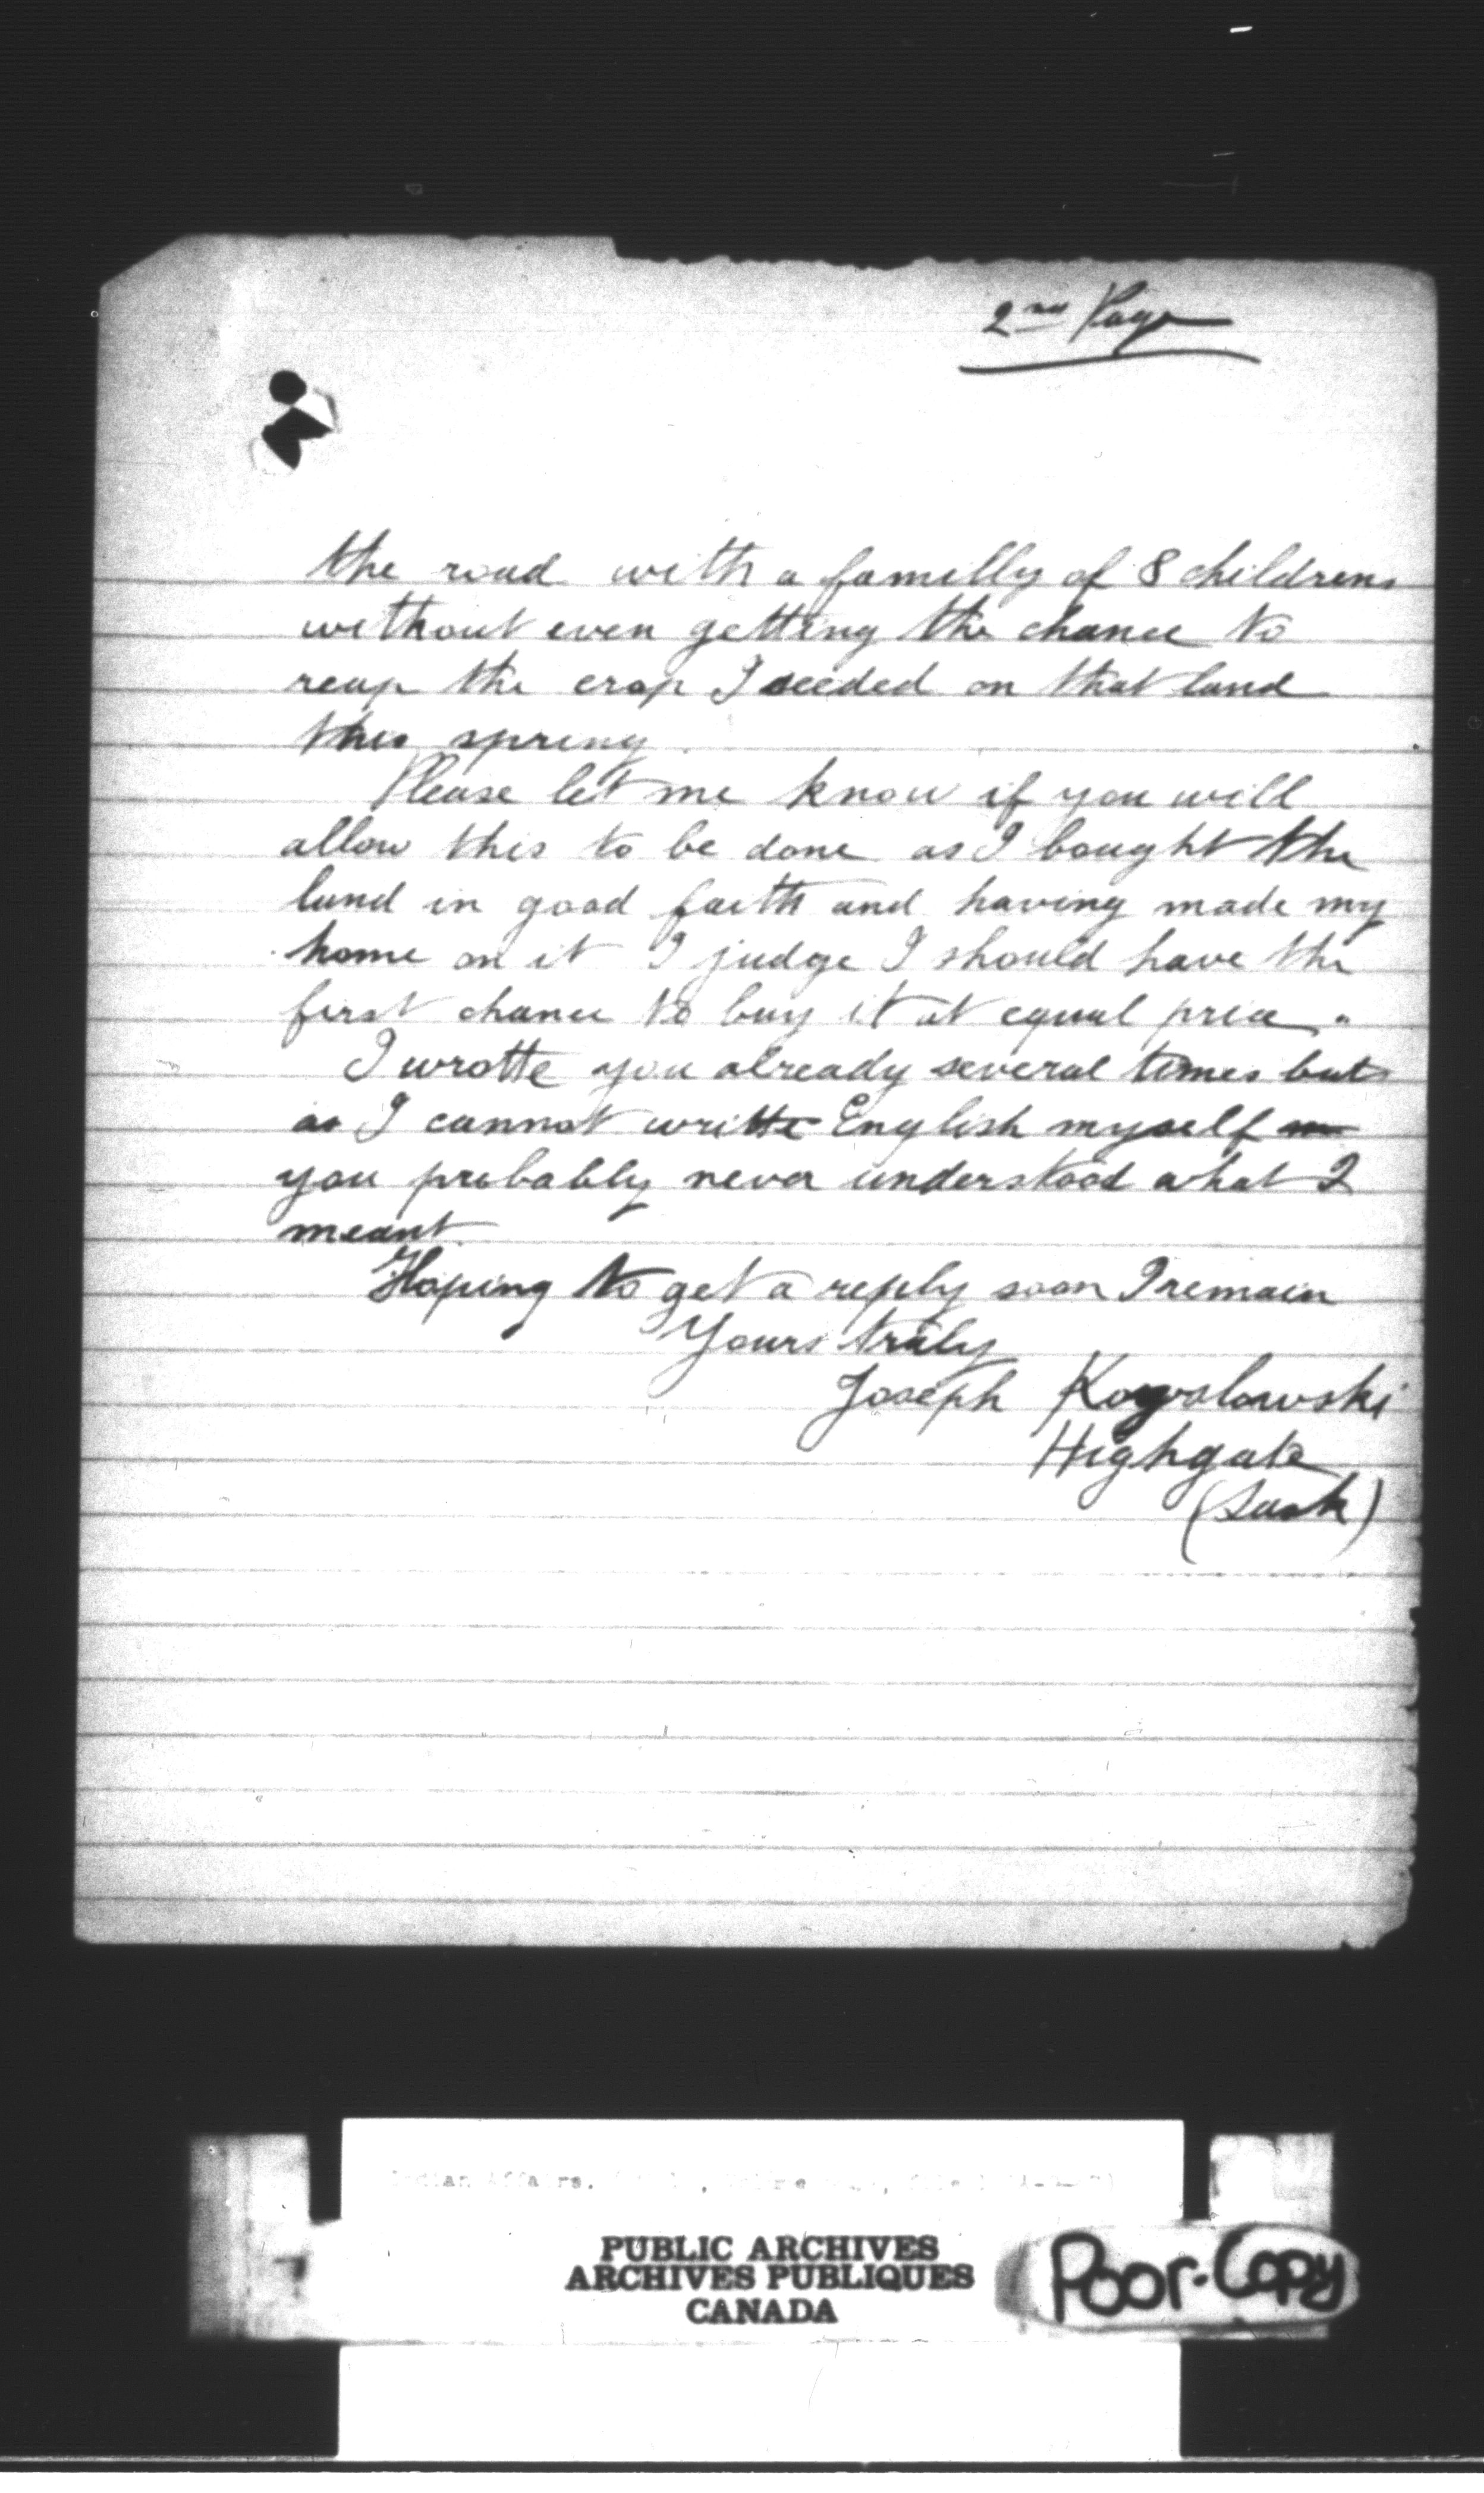 2nd Page
the road with a familly of 8 childrens
without even getting the chance to
reap the crop I seeded on that land
this spring.
Please let me know if you will
allow this to be done as I bought the
land in good faith and having made my
home on it I judge I should have the
first chance to buy it at equal price.
I wrotte you already several times but
as I cannot writte English myself
you probably never understood what I
meant.
Hoping to get a reply soon I remain
Yours truly
Joseph
Highgate
(Sask)
Indian Affairs.
PUBLIC ARCHIVES
ARCHIVES PUBLIQUES
CANADA
Poor-Copy